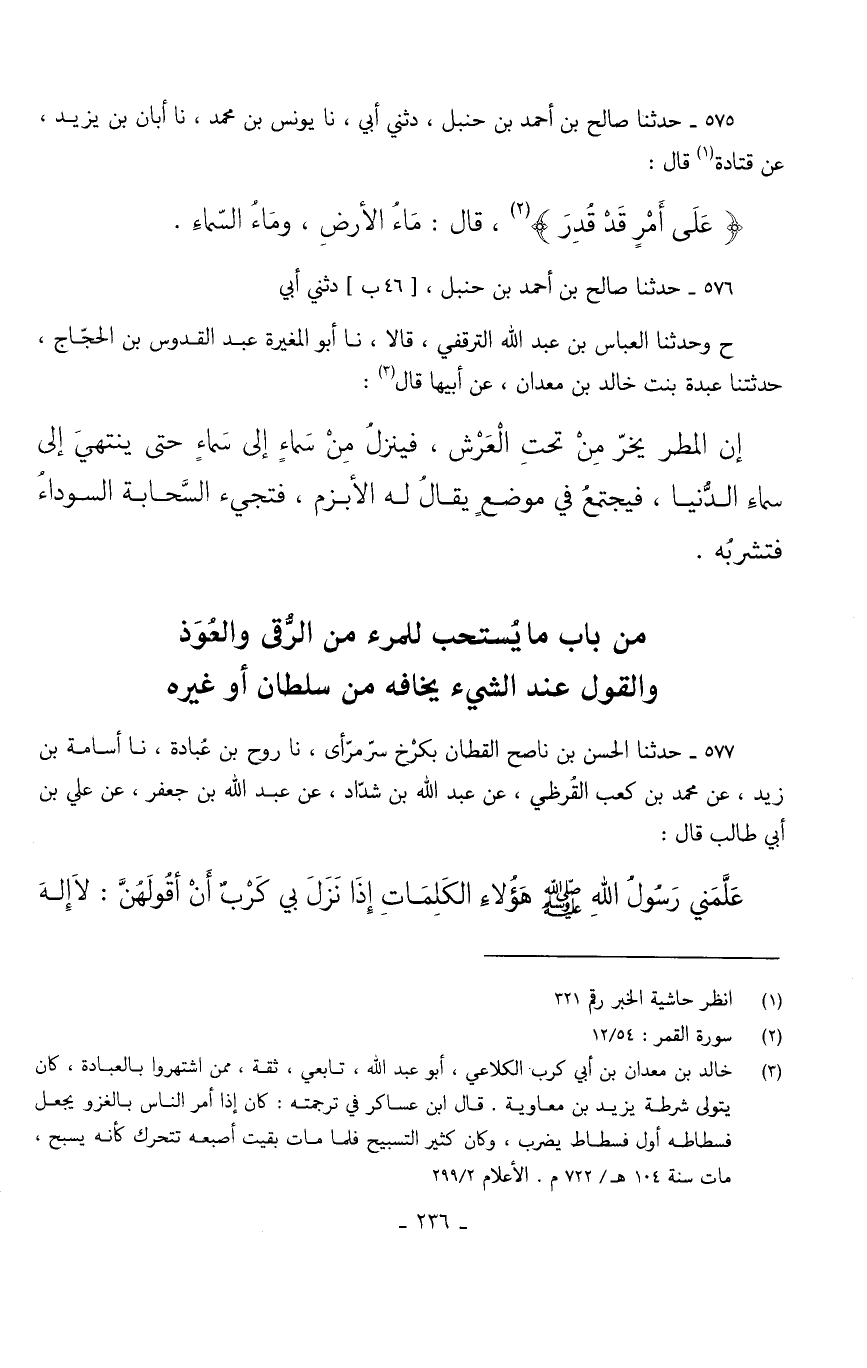 ٥٧٥ ـ حدثنا صالح بن أحمد بن حنبل ، دثني أبي ، نا يونس بن محمد ، نا أبان بن يزيد ،
عن قتادة(١) قال :
﴿ عَلَى أَمْرٍ قَدْ قُدِرَ ﴾(٢) ، قال : مَاءُ الأرضِ ، ومَاءُ السّماءِ .
٥٧٦ ـ حدثنا صالح بن أحمد بن حنبل ، [ ٤٦ ب ] دثني أبي
ح وحدثنا العباس بن عبد الله الترقفي ، قالا ، نا أبو المغيرة عبد القدوس بن الحجّاج ،
حدثتنا عبدة بنت خالد بن معدان ، عن أبيها قال(٣) :
إن المطر يخرّ مِنْ تحتِ الْعَرْش ، فينزلُ مِنْ سَماءٍ إلى سَماءٍ حتى ينتهيَ إلى
سماءِ الدُّنيا ، فيجتمعُ في موضعٍ يقالُ له الأبزم ، فتجيء السَّحابة السوداءُ
فتشربُه .
من باب ما يُستحب للمرء من الرُّقى والعُوَذ
والقول عند الشيء يخافه من سلطان أو غيره
٥٧٧ ـ حدثنا الحسن بن ناصح القطان بكرْخ سرّ مرّأى ، نا روح بن عُبادة ، نا أسامة بن
زيد ، عن محمد بن كعب القُرظي ، عن عبد الله بن شدّاد ، عن عبد الله بن جعفر ، عن علي بن
أبي طالب قال :
عَلَّمَني رَسُولُ اللهِ ﷺ هَؤُلاءِ الكَلِمَاتِ إِذَا نَزَلَ بي كَرْبٌ أَنْ أَقُولَهُنَّ : لاَإِلهَ
(١) انظر حاشية الخبر رقم ٣٢١
(٢) سورة القمر : ١٢/٥٤
(٣) خالد بن معدان بن أبي كرب الكلاعي ، أبو عبد الله ، تابعي ، ثقة ، ممن اشتهروا بالعبادة ، كان
يتولى شرطة يزيد بن معاوية . قال ابن عساكر في ترجمته : كان إذا أمر الناس بالغزو يجعل
فسطاطه أول فسطاط يضرب ، وكان كثير التسبيح فلما مات بقيت أصبعه تتحرك كأنه يسبح ،
مات سنة ١٠٤ هـ/ ٧٢٢ م . الأعلام ٢٩٩/٢
ـ ٢٣٦ ـ